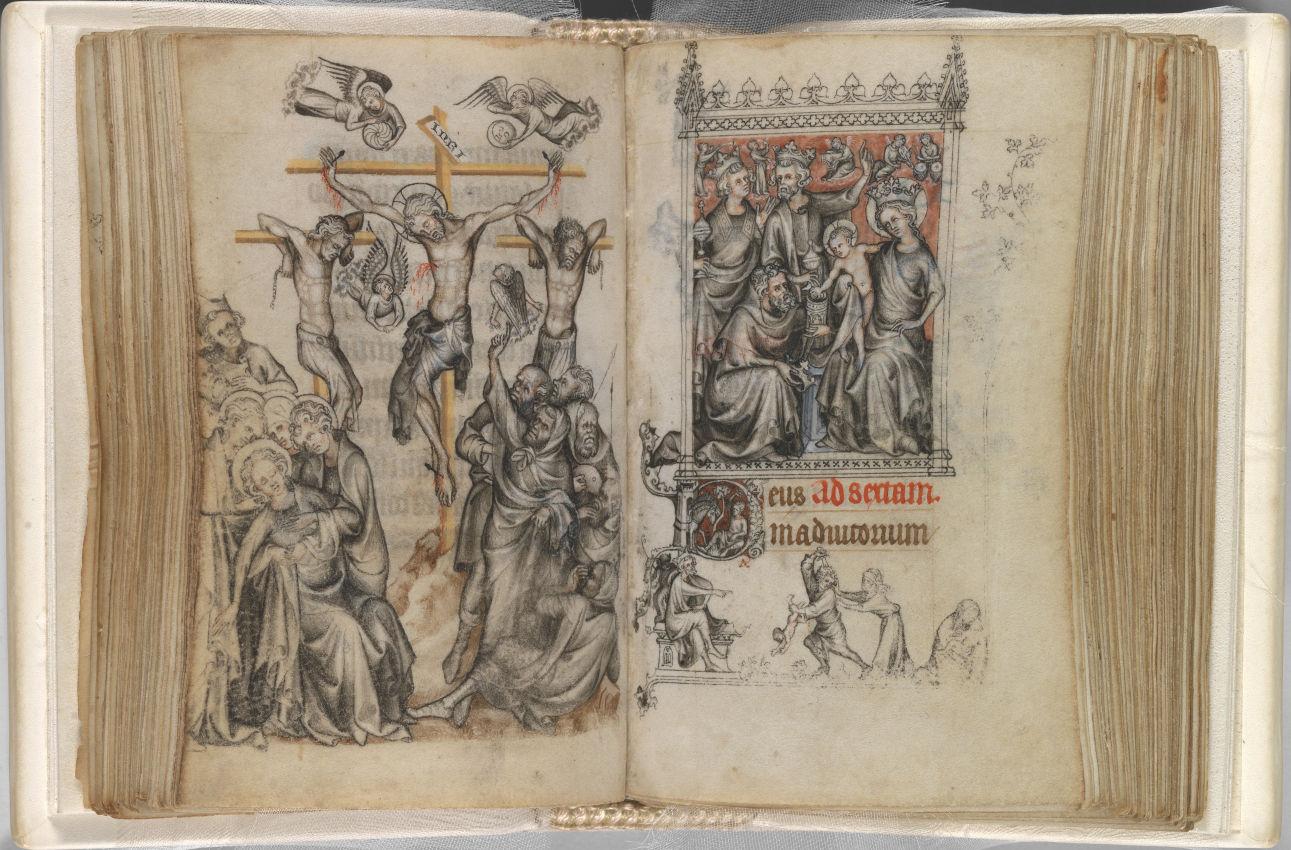 INRI
eus ad sextam.
in adiutorium